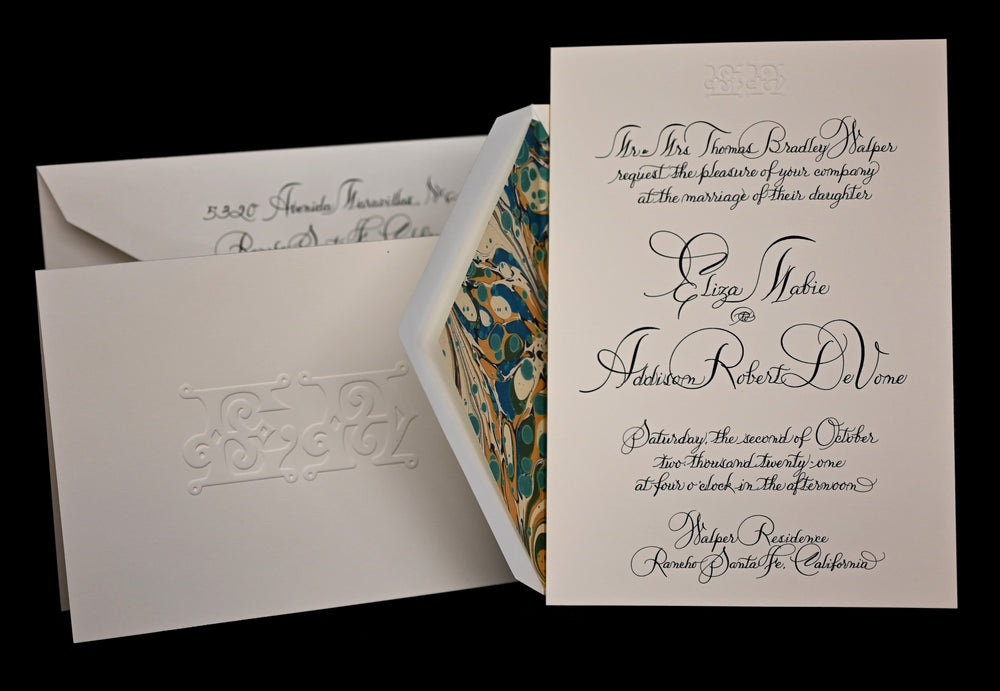 5320 Avenida Maravillas
Rancho Santa Fe
Mr. Mrs Thomas Bradley Walper
request the pleasure of your company
at the marriage of their daughter
Eliza Mabie
to
Addison Robert DeVome
Saturday, the second of October
two thousand twenty-one
at four o'clock in the afternoon
Walper Residence
Rancho Santa Fe, California